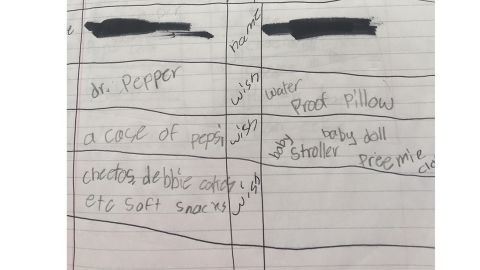 name
dr. Pepper
wish
water
Proof Pillow
a case of pepsi
wish
baby
baby doll
stroller
Preemie
cheetos, debbie
wish
etc Soft snacks